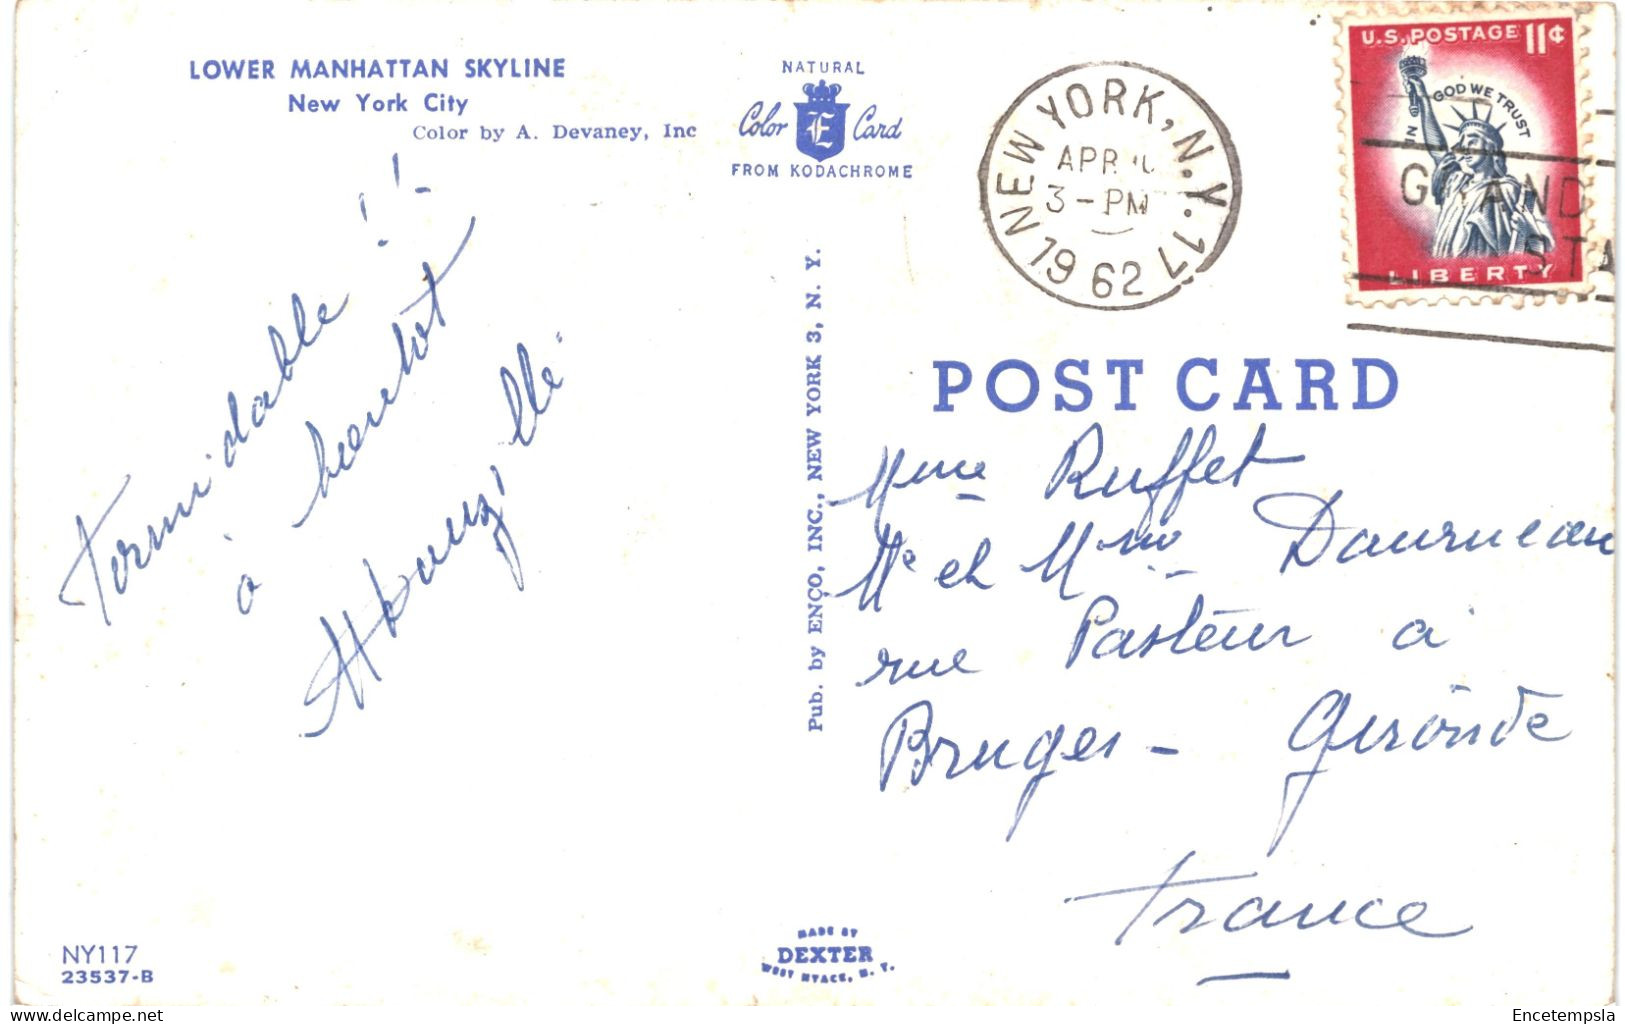 LOWER MANHATTAN SKYLINE
New York City
Color by A. Devaney, Inc
NATURAL
Color E Card
FROM KODACHROME
NEW YORK, N.Y. 17
APR
3-PM
1962
U.S. POSTAGE 11¢
IN GOD WE TRUST
LIBERTY
G AND
STA
Formidable!!-
à bientôt
Pub. by ENCO, INC., NEW YORK 3, N. Y.
POST CARD
Mme Ruffet
Mr et Mme Daurneau
rue Pasteur à
Bruges - Gironde
France
NY117
23537-B
MADE BY
DEXTER
WEST NYACK, N. Y.
Encetempsla